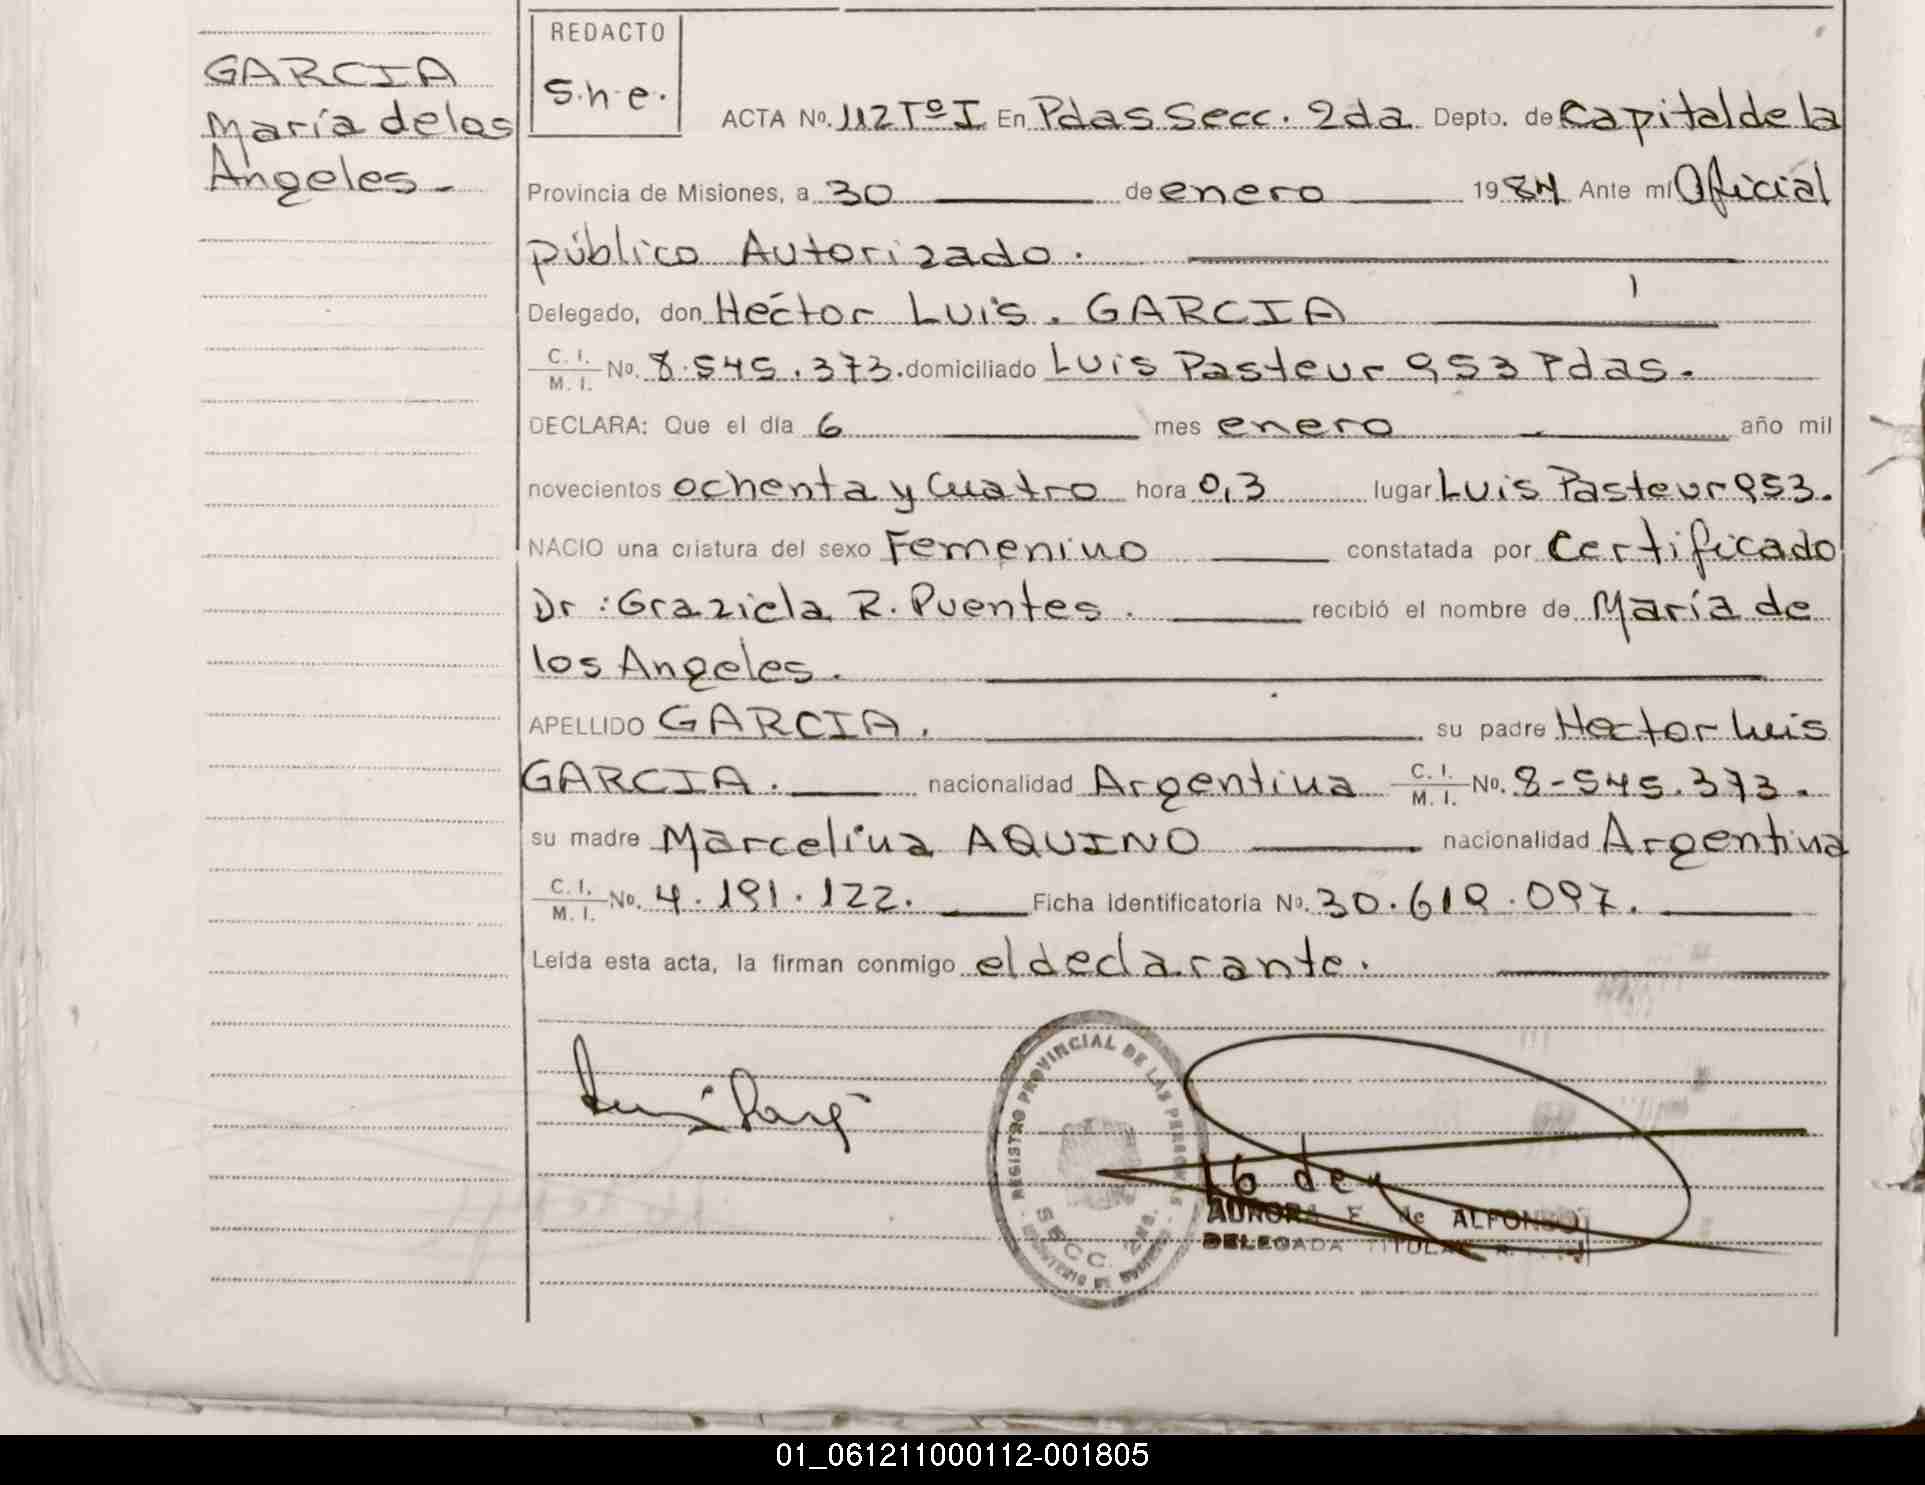 GARCIA
María de los
Angeles.-
REDACTO
S.h.e.
ACTA No. 112 Tº I En Pdas Secc. 2da Depto. de Capital de la
Provincia de Misiones, a 30 de enero 1984 Ante mí Oficial
público Autorizado.
Delegado, don Héctor Luis. GARCIA
C. I. / M. I. No. 8.545.373. domiciliado Luis Pasteur 953 Pdas.
DECLARA: Que el día 6 mes enero año mil
novecientos ochenta y cuatro hora 0,3 lugar Luis Pasteur 953.
NACIO una criatura del sexo Femenino constatada por Certificado
Dr: Graziela R. Puentes. recibió el nombre de María de
los Angeles.
APELLIDO GARCIA. su padre Hector Luis
GARCIA. nacionalidad Argentina C. I. / M. I. No. 8-545.373.
su madre Marcelina AQUINO nacionalidad Argentina
C. I. / M. I. No. 4.191.122. Ficha Identificatoria No. 30.619.097.
Leída esta acta, la firman conmigo el declarante.
REGISTRO PROVINCIAL DE LAS PERSONAS
SECC. 2da.
MINISTERIO DE GOBIERNO
AURORA F. de ALFONSO
DELEGADA TITULAR
01_061211000112-001805